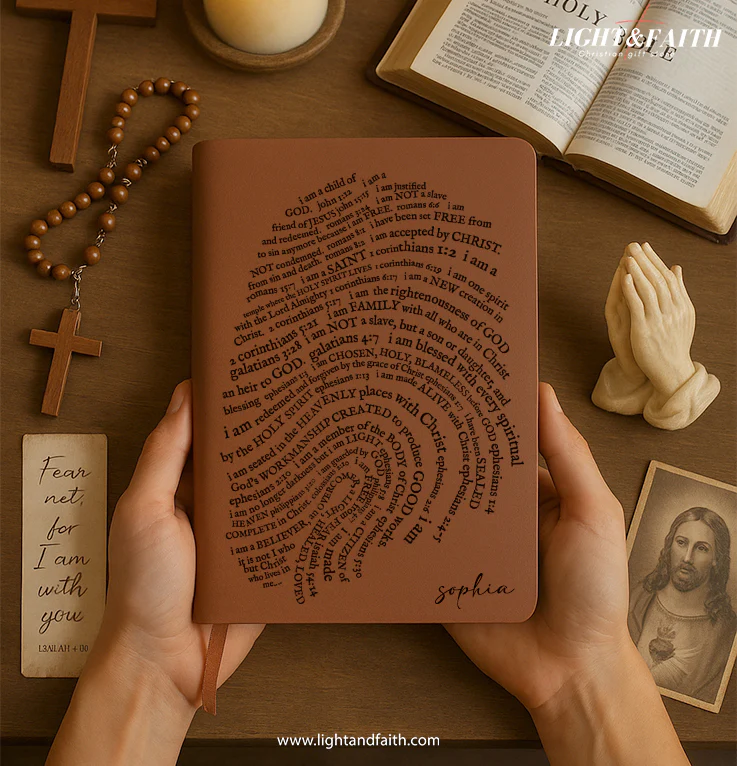 HOLY BIBLE
LIGHT&FAITH
Christian gift store
i am a child of
GOD. john 1:12 i am a
friend of JESUS john 15:15 i am justified
and redeemed. romans 3:24 i am NOT a slave
to sin anymore because i am FREE. romans 6:6 i am
NOT condemned. romans 8:1 i have been set FREE from
from sin and death. romans 8:2 i am accepted by CHRIST.
romans 15:7 i am a SAINT 1 corinthians 1:2 i am a
temple where the HOLY SPIRIT LIVES 1 corinthians 6:19 i am one spirit
with the Lord Almighty 1 corinthians 6:17 i am a NEW creation in
Christ. 2 corinthians 5:17 i am the righteounsness of GOD
2 corinthians 5:21 i am FAMILY with all who are in Christ
galatians 3:28 i am NOT a slave, but a son or daughter, and
an heir to GOD. galatians 4:7 i am blessed with every spiritual
blessing ephesians 1:3 i am CHOSEN, HOLY, BLAMELESS before GOD ephesians 1:4
i am redeemed and forgiven by the grace of Christ ephesians 1:7 i have been SEALED
by the HOLY SPIRIT ephesians 1:13 i am made ALIVE with Christ ephesians 2:4-7
i am seated in the HEAVENLY places with Christ ephesians 2:6 i am
God's WORKMANSHIP CREATED to produce GOOD works.
ephesians 2:10 i am a member of the BODY of Christ ephesians 5:30
i am no longer darkness but i am LIGHT ephesians 5:8 i am a CITIZEN of
HEAVEN philippians
i am guarded by GOD
COMPLETE in Christ.
i am FREE
i am a BELIEVER,
it is not I who
but Christ
who lives in
me...
i am made
LOVED
isaiah 54:14
sophia
Fear
net,
for
I am
with
you
www.lightandfaith.com